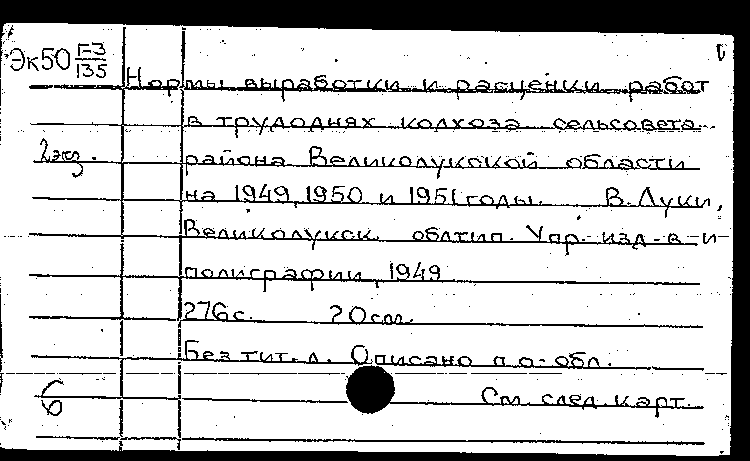 Эк50 Г-3
135
Нормы выработки и расценки работ
в трудоднях колхоза сельсовета
2 экз.
района Великолукской области
на 1949, 1950 и 1951 годы. В. Луки,
Великолукск. облтип. Упр. изд-в и
полиграфии, 1949
276 с. 20 см.
Без тит. л. Описано по обл.
6
См. след. карт.